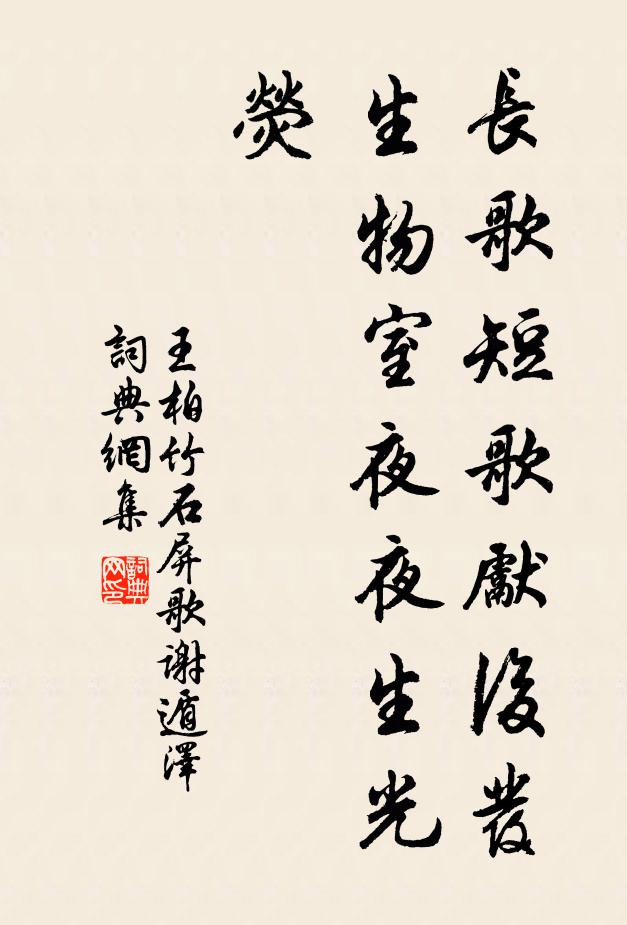 長歌短歌獻後發
生物室夜夜生光
熒
王柏竹石屏歌謝遁澤
詞典網集
詞典
网印